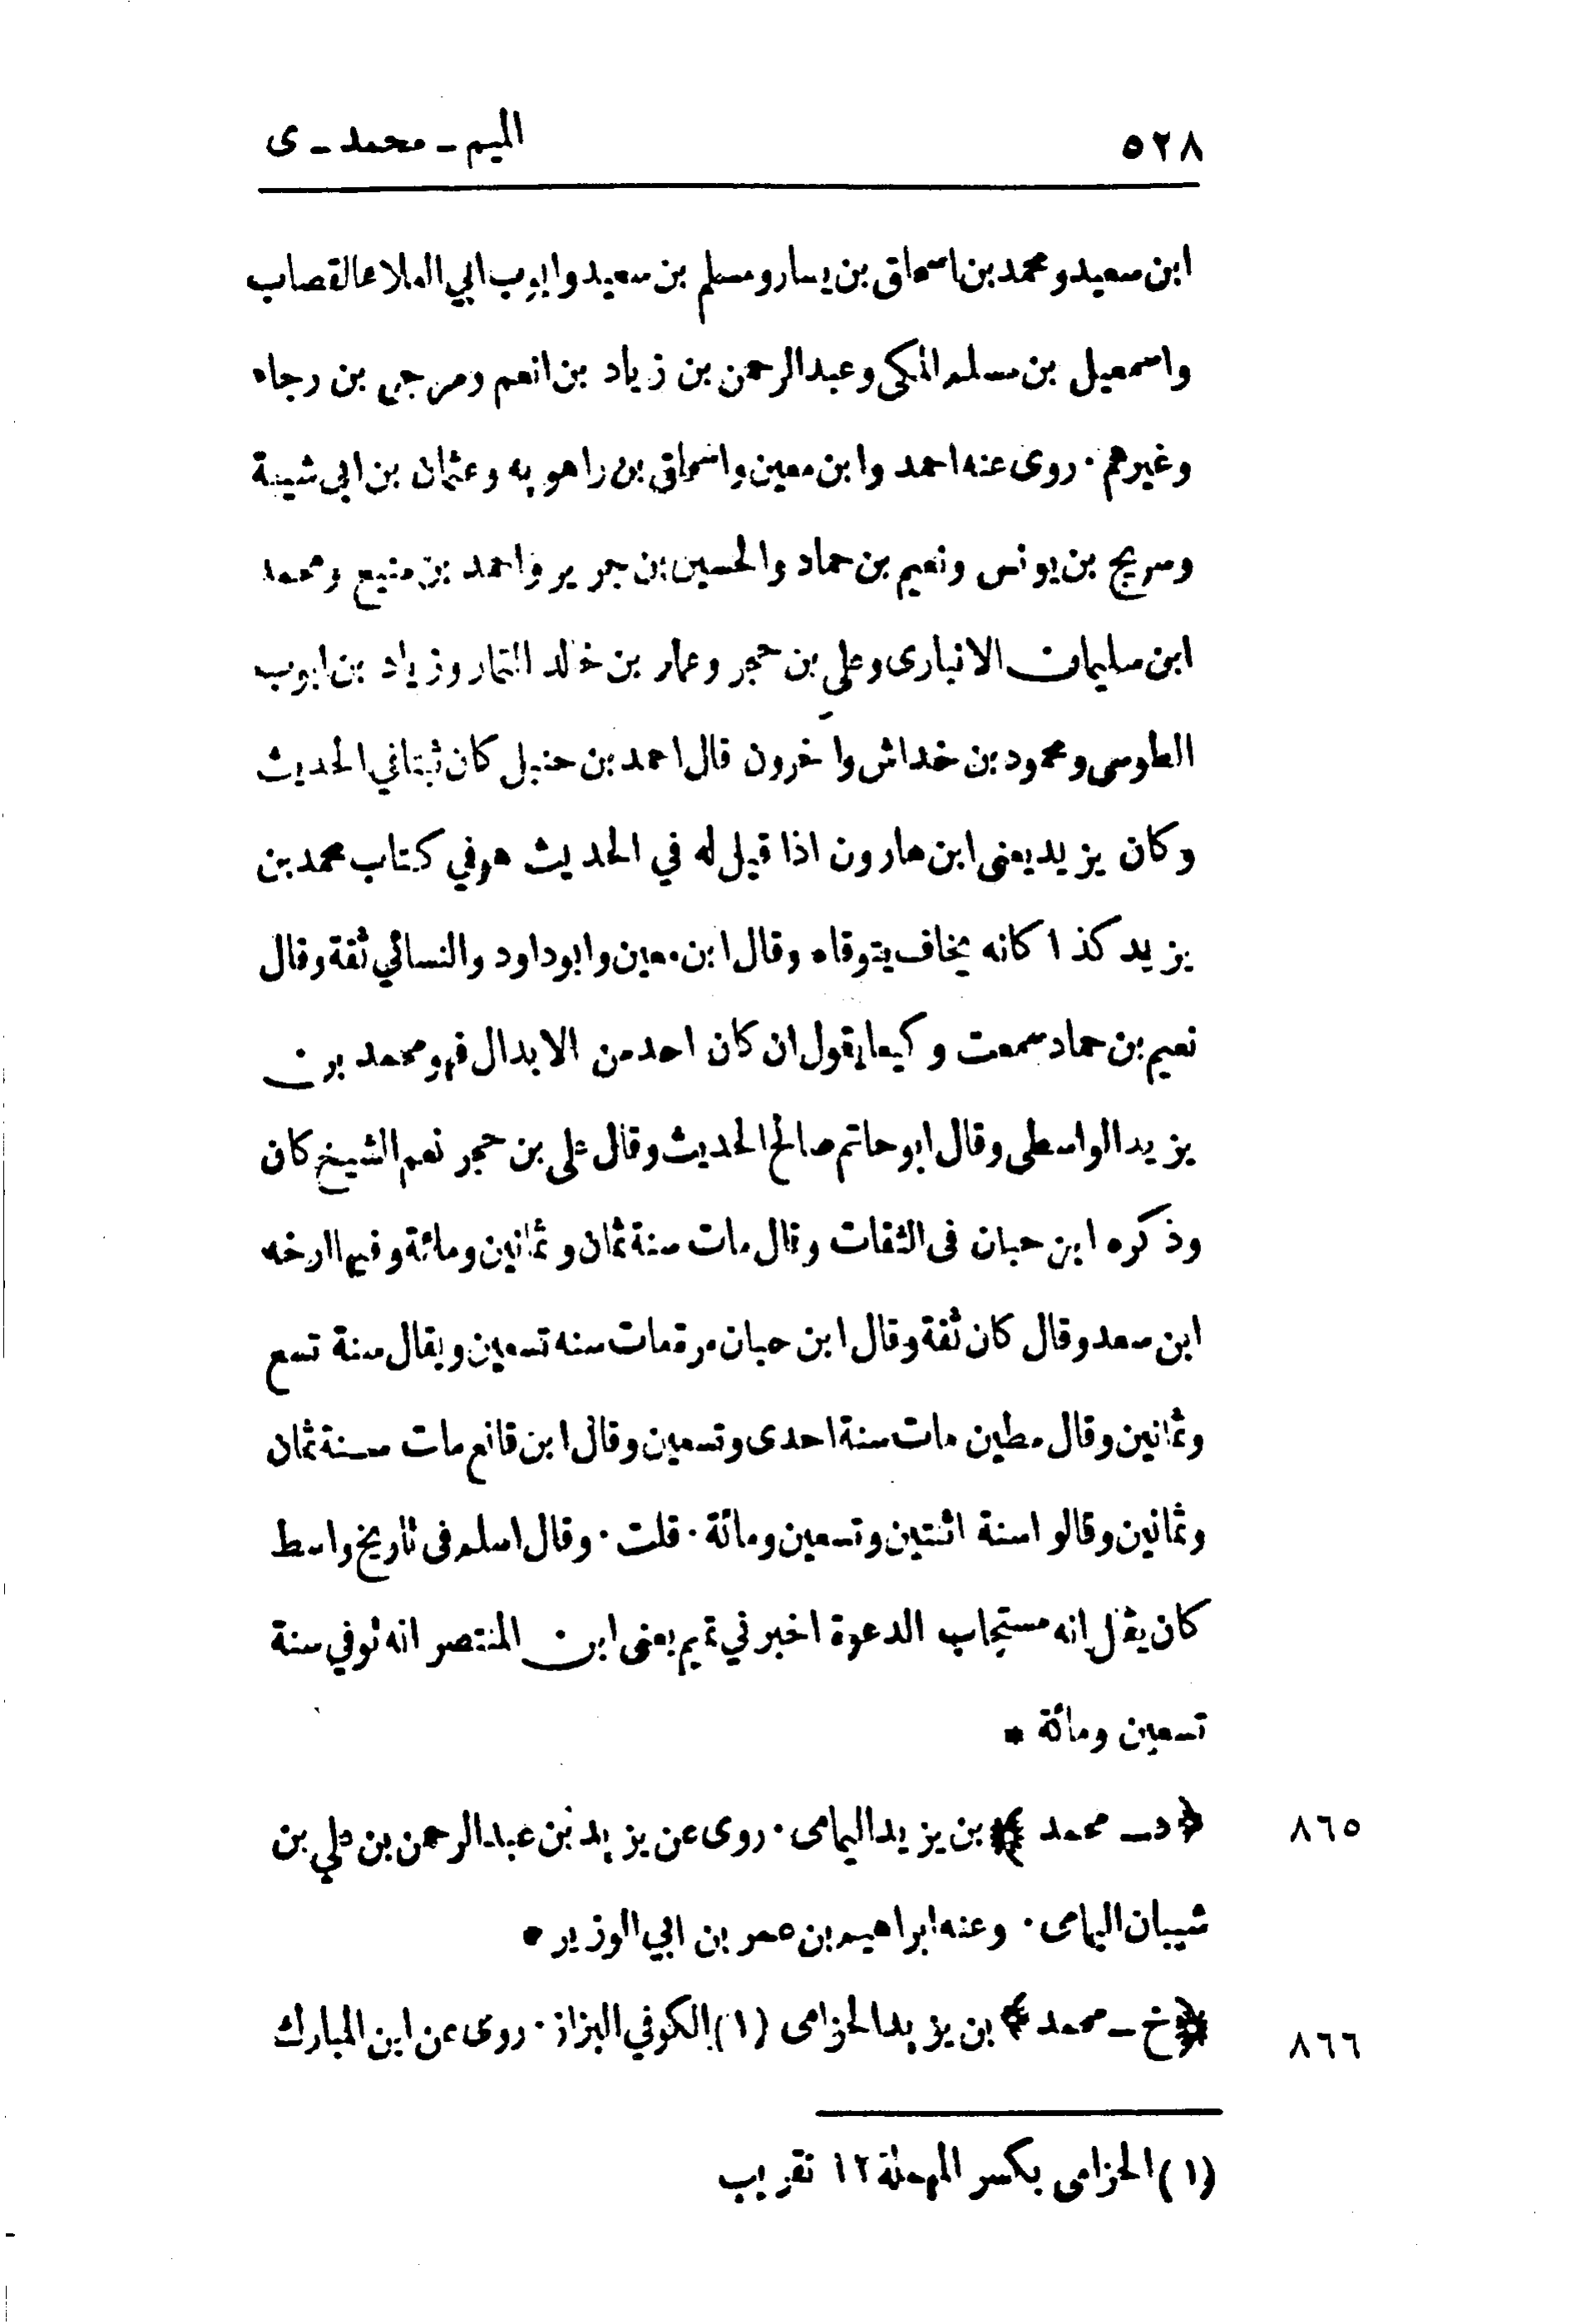 ٥٢٨ الميم ـ محمد ـ ى
ابن سعيد ومحمد بن اسحاق بن يسار ومسلم بن سعيد وايوب ابي العلاء القصاب
واسمعيل بن مسلم المكى وعبد الرحمن بن زياد بن انعم ومرجى بن رجاء
وغيرهم ٠ روى عنه احمد وابن معين واسحاق بن راهويه وعثمان بن ابى شيبة
وسريج بن يونس ونعيم بن حماد والحسين بن جرير واحمد بن منيع ومحمد
ابن سليمان الانبارى وعلي بن حجر وعمار بن خالد التمار وزياد بن ايوب
الطوسى ومحمود بن خداش واخرون قال احمد بن حنبل كان ثبتا في الحديث
وكان يزيد يعنى ابن هارون اذا قيل له في الحديث هو في كتاب محمد بن
يزيد كذا كانه يخاف يتوقاه وقال ابن معين وابو داود والنسائي ثقة وقال
نعيم بن حماد سمعت وكيعا يقول ان كان احد من الابدال فهو محمد بن
يزيد الواسطى وقال ابو حاتم صالح الحديث وقال على بن حجر نعم الشيخ كان
وذكره ابن حبان فى الثقات وقال مات سنة ثمان وثمانين ومائة وفيها ارخه
ابن سعد وقال كان ثقة وقال ابن حبان مرة مات سنه تسعين ويقال سنة تسع
وثمانين وقال مطين مات سنة احدى وتسعين وقال ابن قانع مات سنة ثمان
وثمانين وقالوا سنة اثنتين وتسعين ومائة ٠ قلت ٠ وقال اسلم فى تاريخ واسط
كان يقال انه مستجاب الدعوة اخبرني تميم يعنى ابن المنتصر انه توفي سنة
تسعين ومائة *
٨٦٥ ﴿ د ـ محمد ﴾ بن يزيد اليمامى ٠ روى عن يزيد بن عبد الرحمن بن علي بن
شيبان اليمامى ٠ وعنه ابراهيم بن عمر بن ابي الوزير *
٨٦٦ ﴿ خ ـ محمد ﴾ بن يزيد الحزامى (١) الكوفي البزاز ٠ روى عن ابن المبارك
(١) الحزامى بكسر المهملة ١٢ تقريب